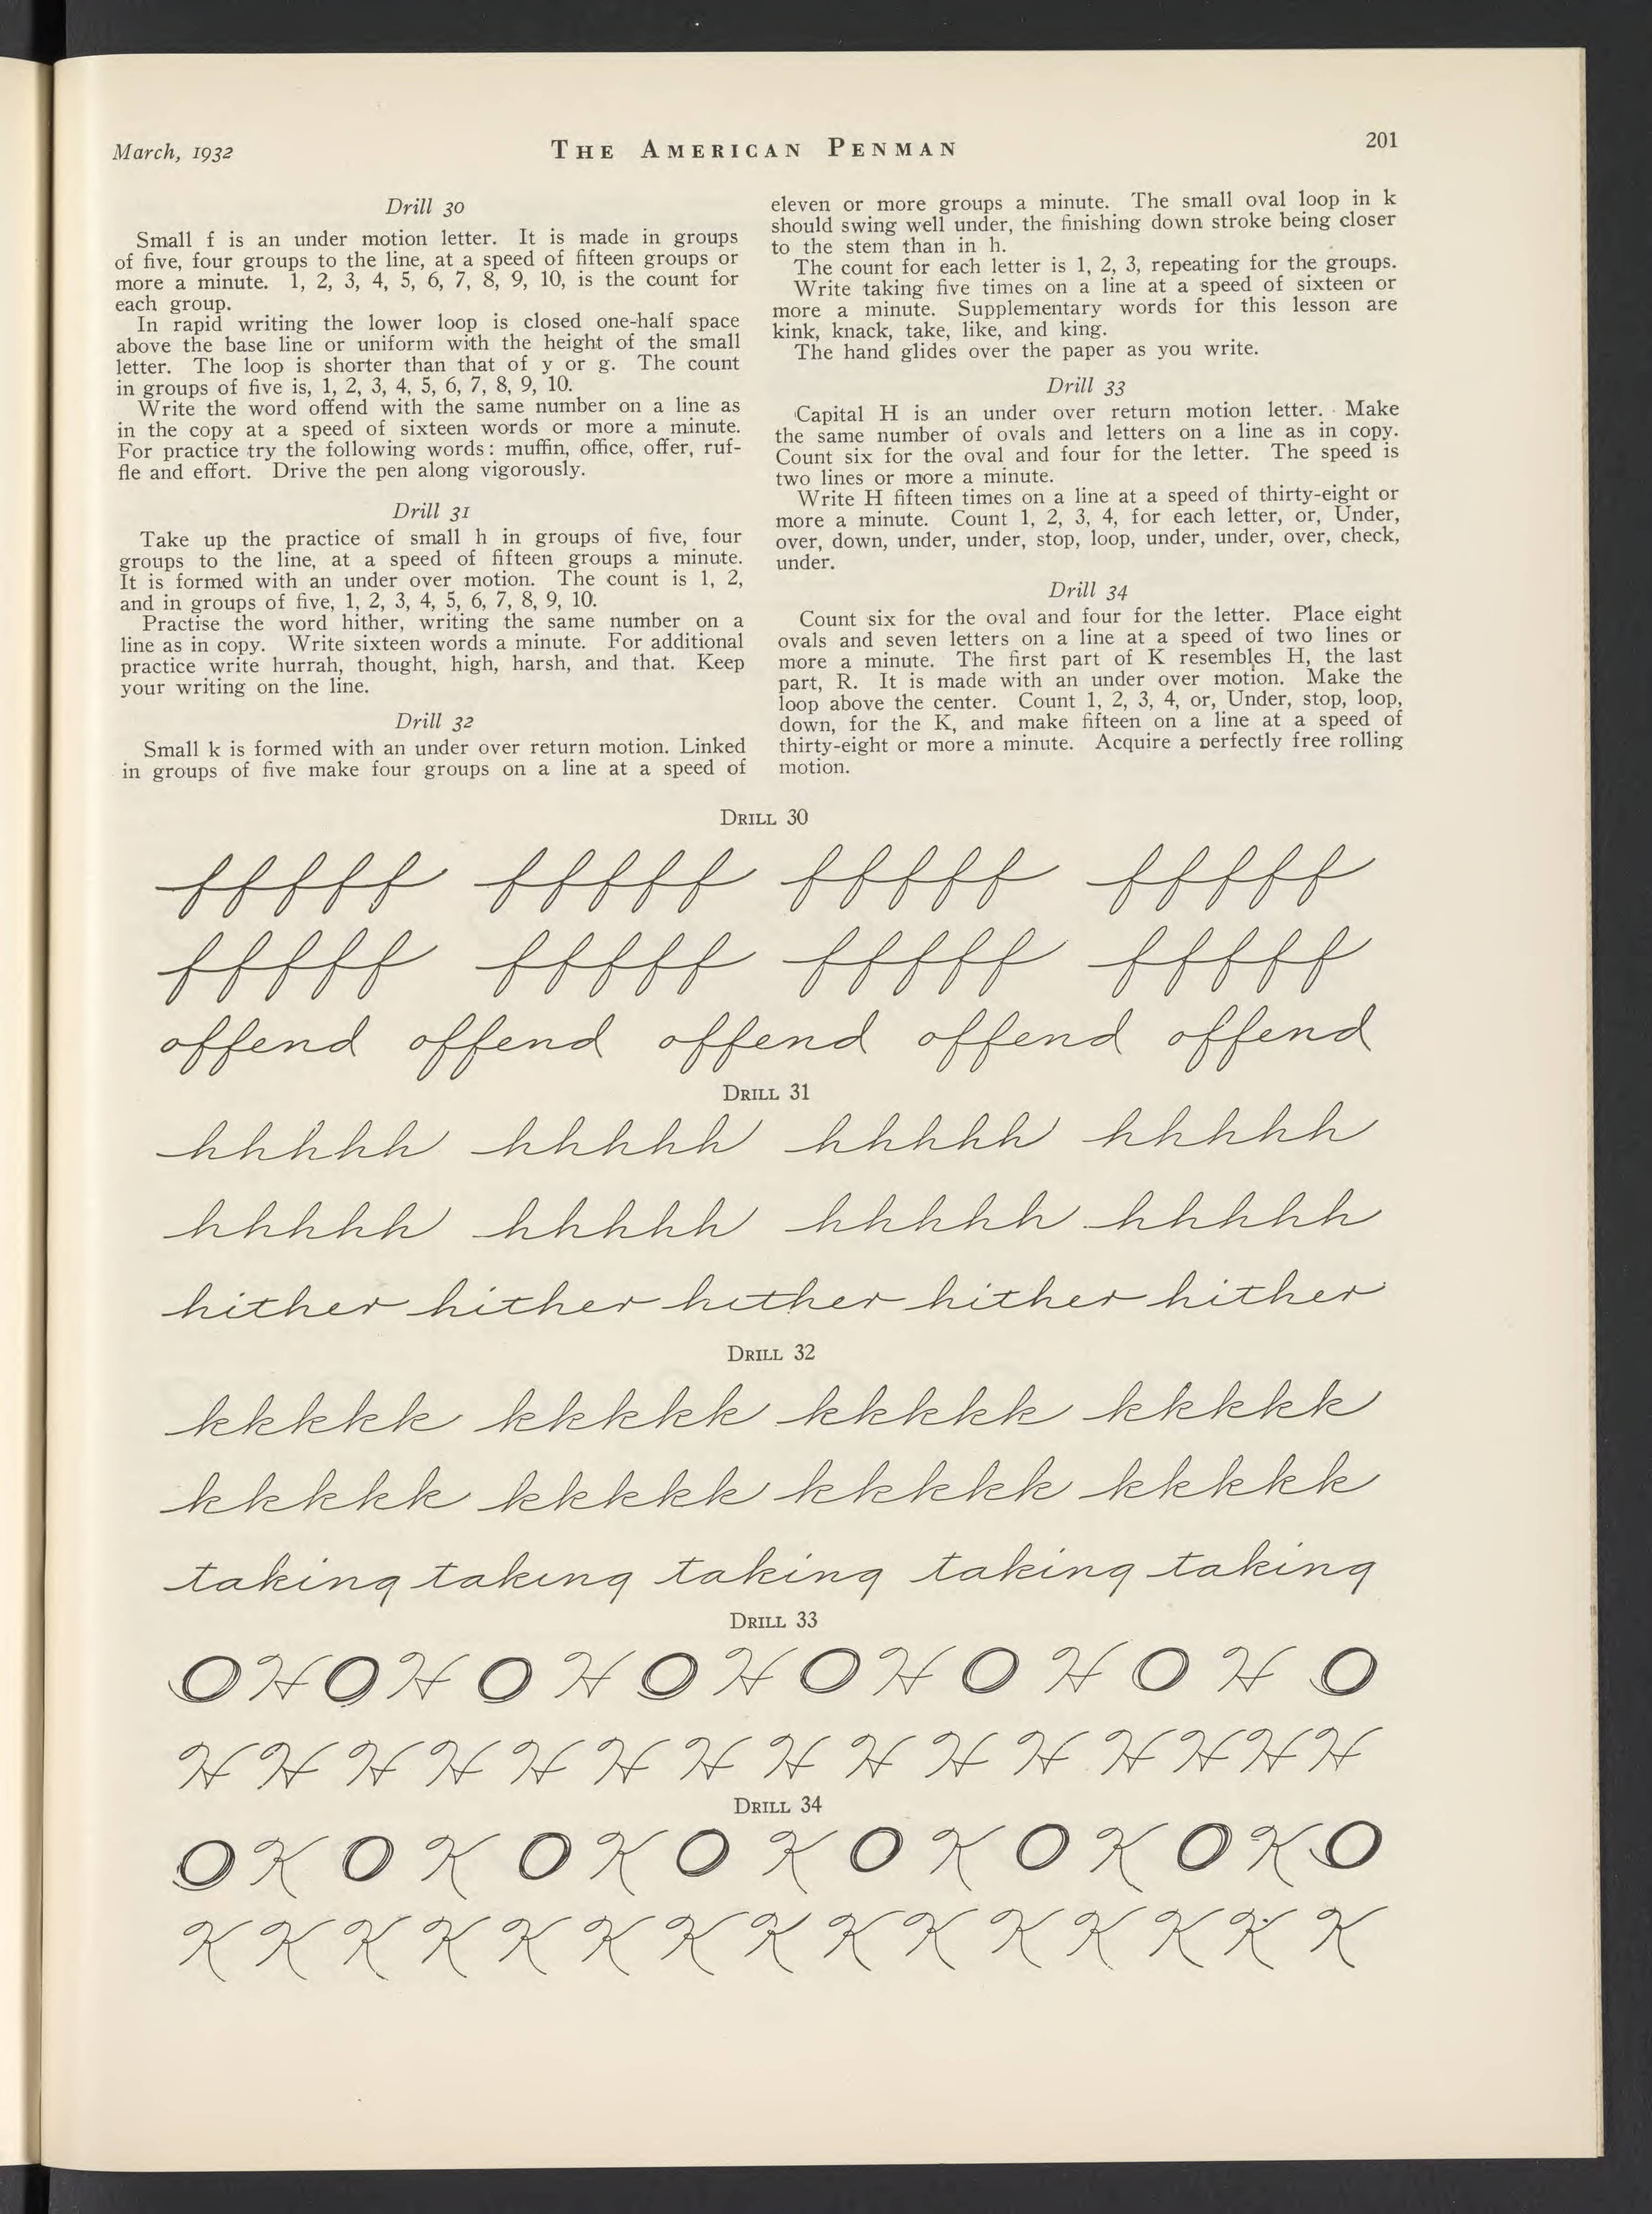 March, 1932
THE AMERICAN PENMAN
201
Drill 30
Small f is an under motion letter. It is made in groups
of five, four groups to the line, at a speed of fifteen groups or
more a minute. 1, 2, 3, 4, 5, 6, 7, 8, 9, 10, is the count for
each group.
In rapid writing the lower loop is closed one-half space
above the base line or uniform with the height of the small
letter. The loop is shorter than that of y or g. The count
in groups of five is, 1, 2, 3, 4, 5, 6, 7, 8, 9, 10.
Write the word offend with the same number on a line as
in the copy at a speed of sixteen words or more a minute.
For practice try the following words: muffin, office, offer, ruf-
fle and effort. Drive the pen along vigorously.
Drill 31
Take up the practice of small h in groups of five, four
groups to the line, at a speed of fifteen groups a minute.
It is formed with an under over motion. The count is 1, 2,
and in groups of five, 1, 2, 3, 4, 5, 6, 7, 8, 9, 10.
Practise the word hither, writing the same number on a
line as in copy. Write sixteen words a minute. For additional
practice write hurrah, thought, high, harsh, and that. Keep
your writing on the line.
Drill 32
Small k is formed with an under over return motion. Linked
in groups of five make four groups on a line at a speed of
eleven or more groups a minute. The small oval loop in k
should swing well under, the finishing down stroke being closer
to the stem than in h.
The count for each letter is 1, 2, 3, repeating for the groups.
Write taking five times on a line at a speed of sixteen or
more a minute. Supplementary words for this lesson are
kink, knack, take, like, and king.
The hand glides over the paper as you write.
Drill 33
Capital H is an under over return motion letter. Make
the same number of ovals and letters on a line as in copy.
Count six for the oval and four for the letter. The speed is
two lines or more a minute.
Write H fifteen times on a line at a speed of thirty-eight or
more a minute. Count 1, 2, 3, 4, for each letter, or, Under,
over, down, under, under, stop, loop, under, under, over, check,
under.
Drill 34
Count six for the oval and four for the letter. Place eight
ovals and seven letters on a line at a speed of two lines or
more a minute. The first part of K resembles H, the last
part, R. It is made with an under over motion. Make the
loop above the center. Count 1, 2, 3, 4, or, Under, stop, loop,
down, for the K, and make fifteen on a line at a speed of
thirty-eight or more a minute. Acquire a perfectly free rolling
motion.
DRILL 30
fffff fffff fffff fffff
fffff fffff fffff fffff
offend offend offend offend offend
DRILL 31
hhhhh hhhhh hhhhh hhhhh
hhhhh hhhhh hhhhh hhhhh
hither hither hither hither hither
DRILL 32
kkkkk kkkkk kkkkk kkkkk
kkkkk kkkkk kkkkk kkkkk
taking taking taking taking taking
DRILL 33
O H O H O H O H O H O H O H O
H H H H H H H H H H H H H H H
DRILL 34
O K O K O K O K O K O K O K O
K K K K K K K K K K K K K K K